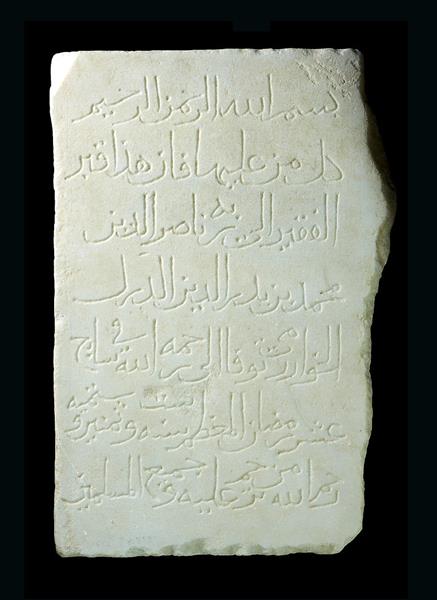 بسم الله الرحمن الرحيم
كل من عليها فان هذا قبر
الفقير الى ربه ناصر الدين
محمد بن بدر الدين
توفا الى رحمه الله في سابع
عشر رمضان المعظم سنه وثمنين و ستميه
رحم الله من ترحم عليه و جميع المسلمين